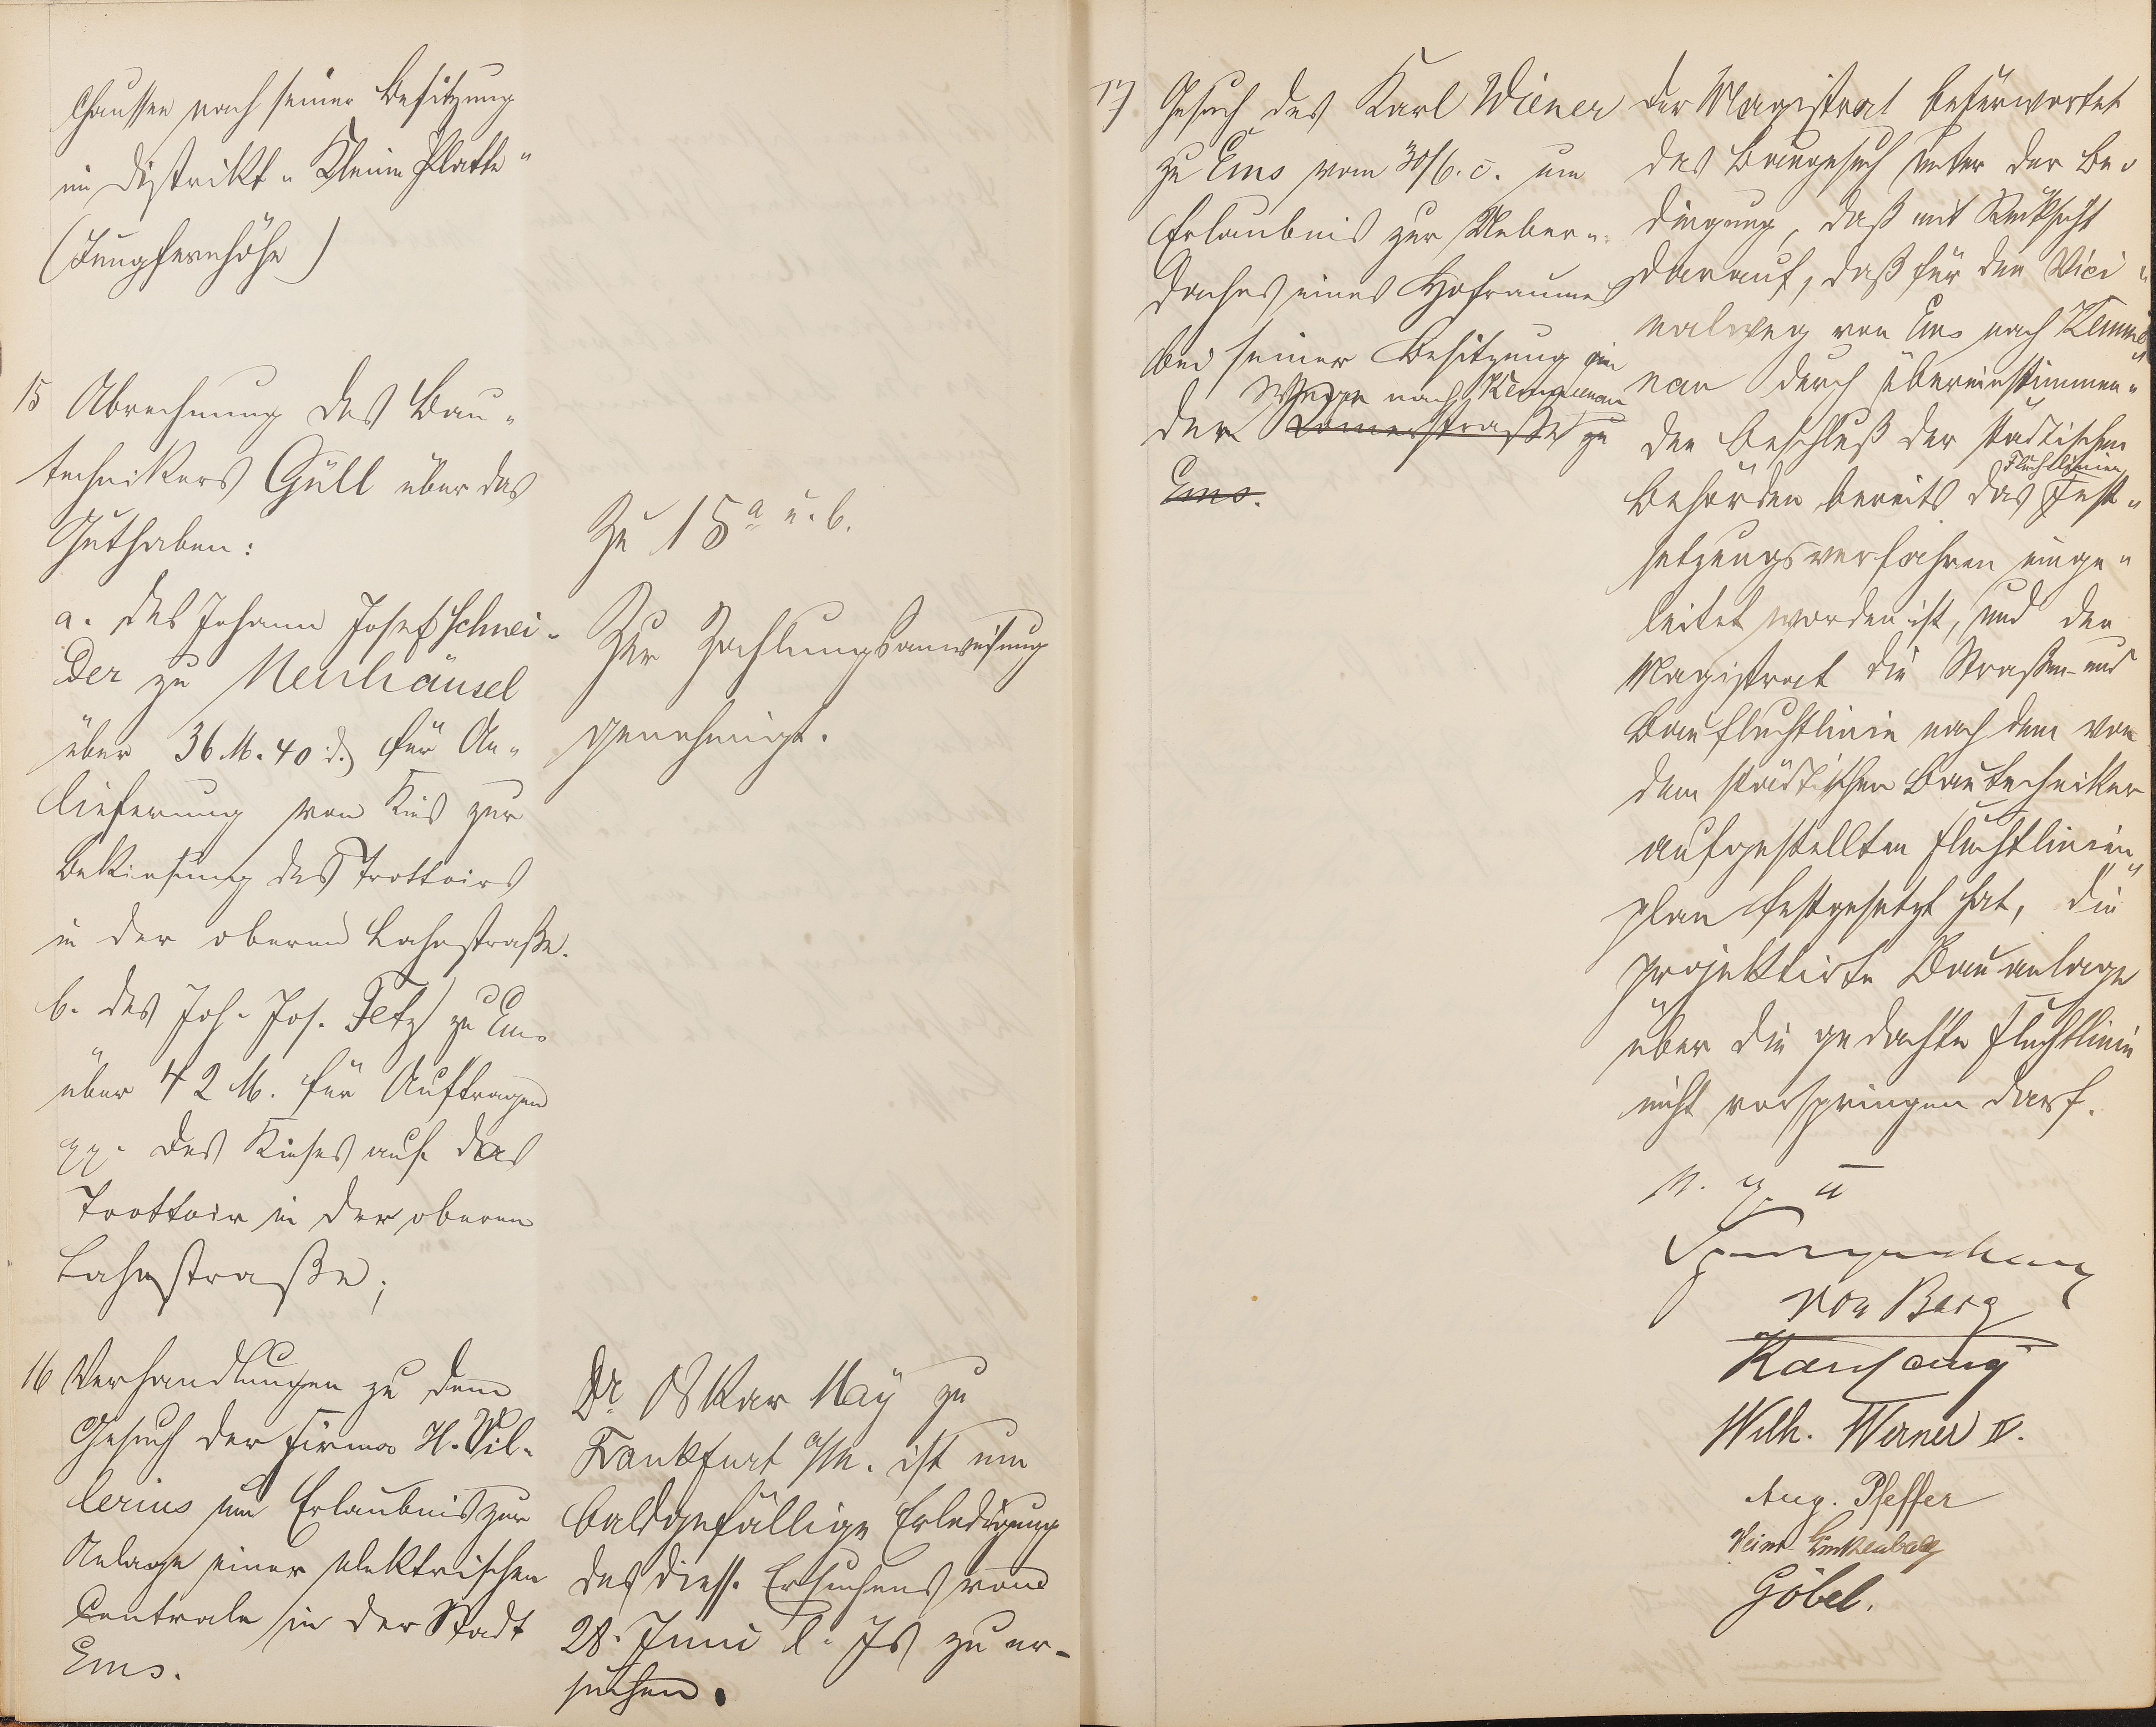 Chaussee nach seiner Besitzung
im Distrikt „Kleine Platte“
(Jungfernhöhe)
15 Abrechnung des Bau„
technikers Güll über das
Guthaben:
a. des Johann Josef Schnei-
der zu Neuhäusel
über 36 M. 40 d. für An„
lieferung von Kies zur
Bekiesung des Trottoirs
in der oberen Lahnstraße.
b. des Joh. Jos. Fetz zu Ems
über 42 M. für Auftragen
pp. des Kieses auf das
Trottoir in der oberen
Lahnstraße;
Zu 15 a u. b.
Zur Zahlungsanweisung
genehmigt.
16 Verhandlungen zu dem
Gesuch der Firma H. Vil-
lerius um Erlaubnis zur
Anlage einer elektrischen
Centrale in der Stadt
Ems.
Dr. Oskar May zu
Frankfurt a/M. ist um
baldgefällige Erledigung
des diess. Ersuchens vom
28. Juni d. Js zu er-
suchen.
17) Gesuch des Karl Wiener
zu Ems vom 30/6. c. um
Erlaubnis zur Ueber„
daches eines Hofraumes
bei seiner Besitzung in
Wege nach Kemmenau
der Römerstraße zu
Ems.
der Magistrat befürwortet
das Baugesuch unter der Be„
dingung, daß mit Rücksicht
darauf, daß für den Vici„
nalweg von Ems nach Kemme„
nau durch übereinstimmen„
den Beschluß der städtischen
Fluchtlinien
Behörden bereits das Fest„
setzungsverfahren einge„
leitet worden ist, und der
Magistrat die Straßen- und
Baufluchtlinie nach dem von
dem städtischen Bautechniker
aufgestellten Fluchtlinien„
plan festgesetzt hat, die
projektirte Bauanlage
über die gedachte Fluchtlinie
nicht vorspringen darf.
v. g. u
Spangenberg
von Berg
Wilh. Werner IV.
Aug. Pfeffer
Heinr Linkenbach
Göbel.